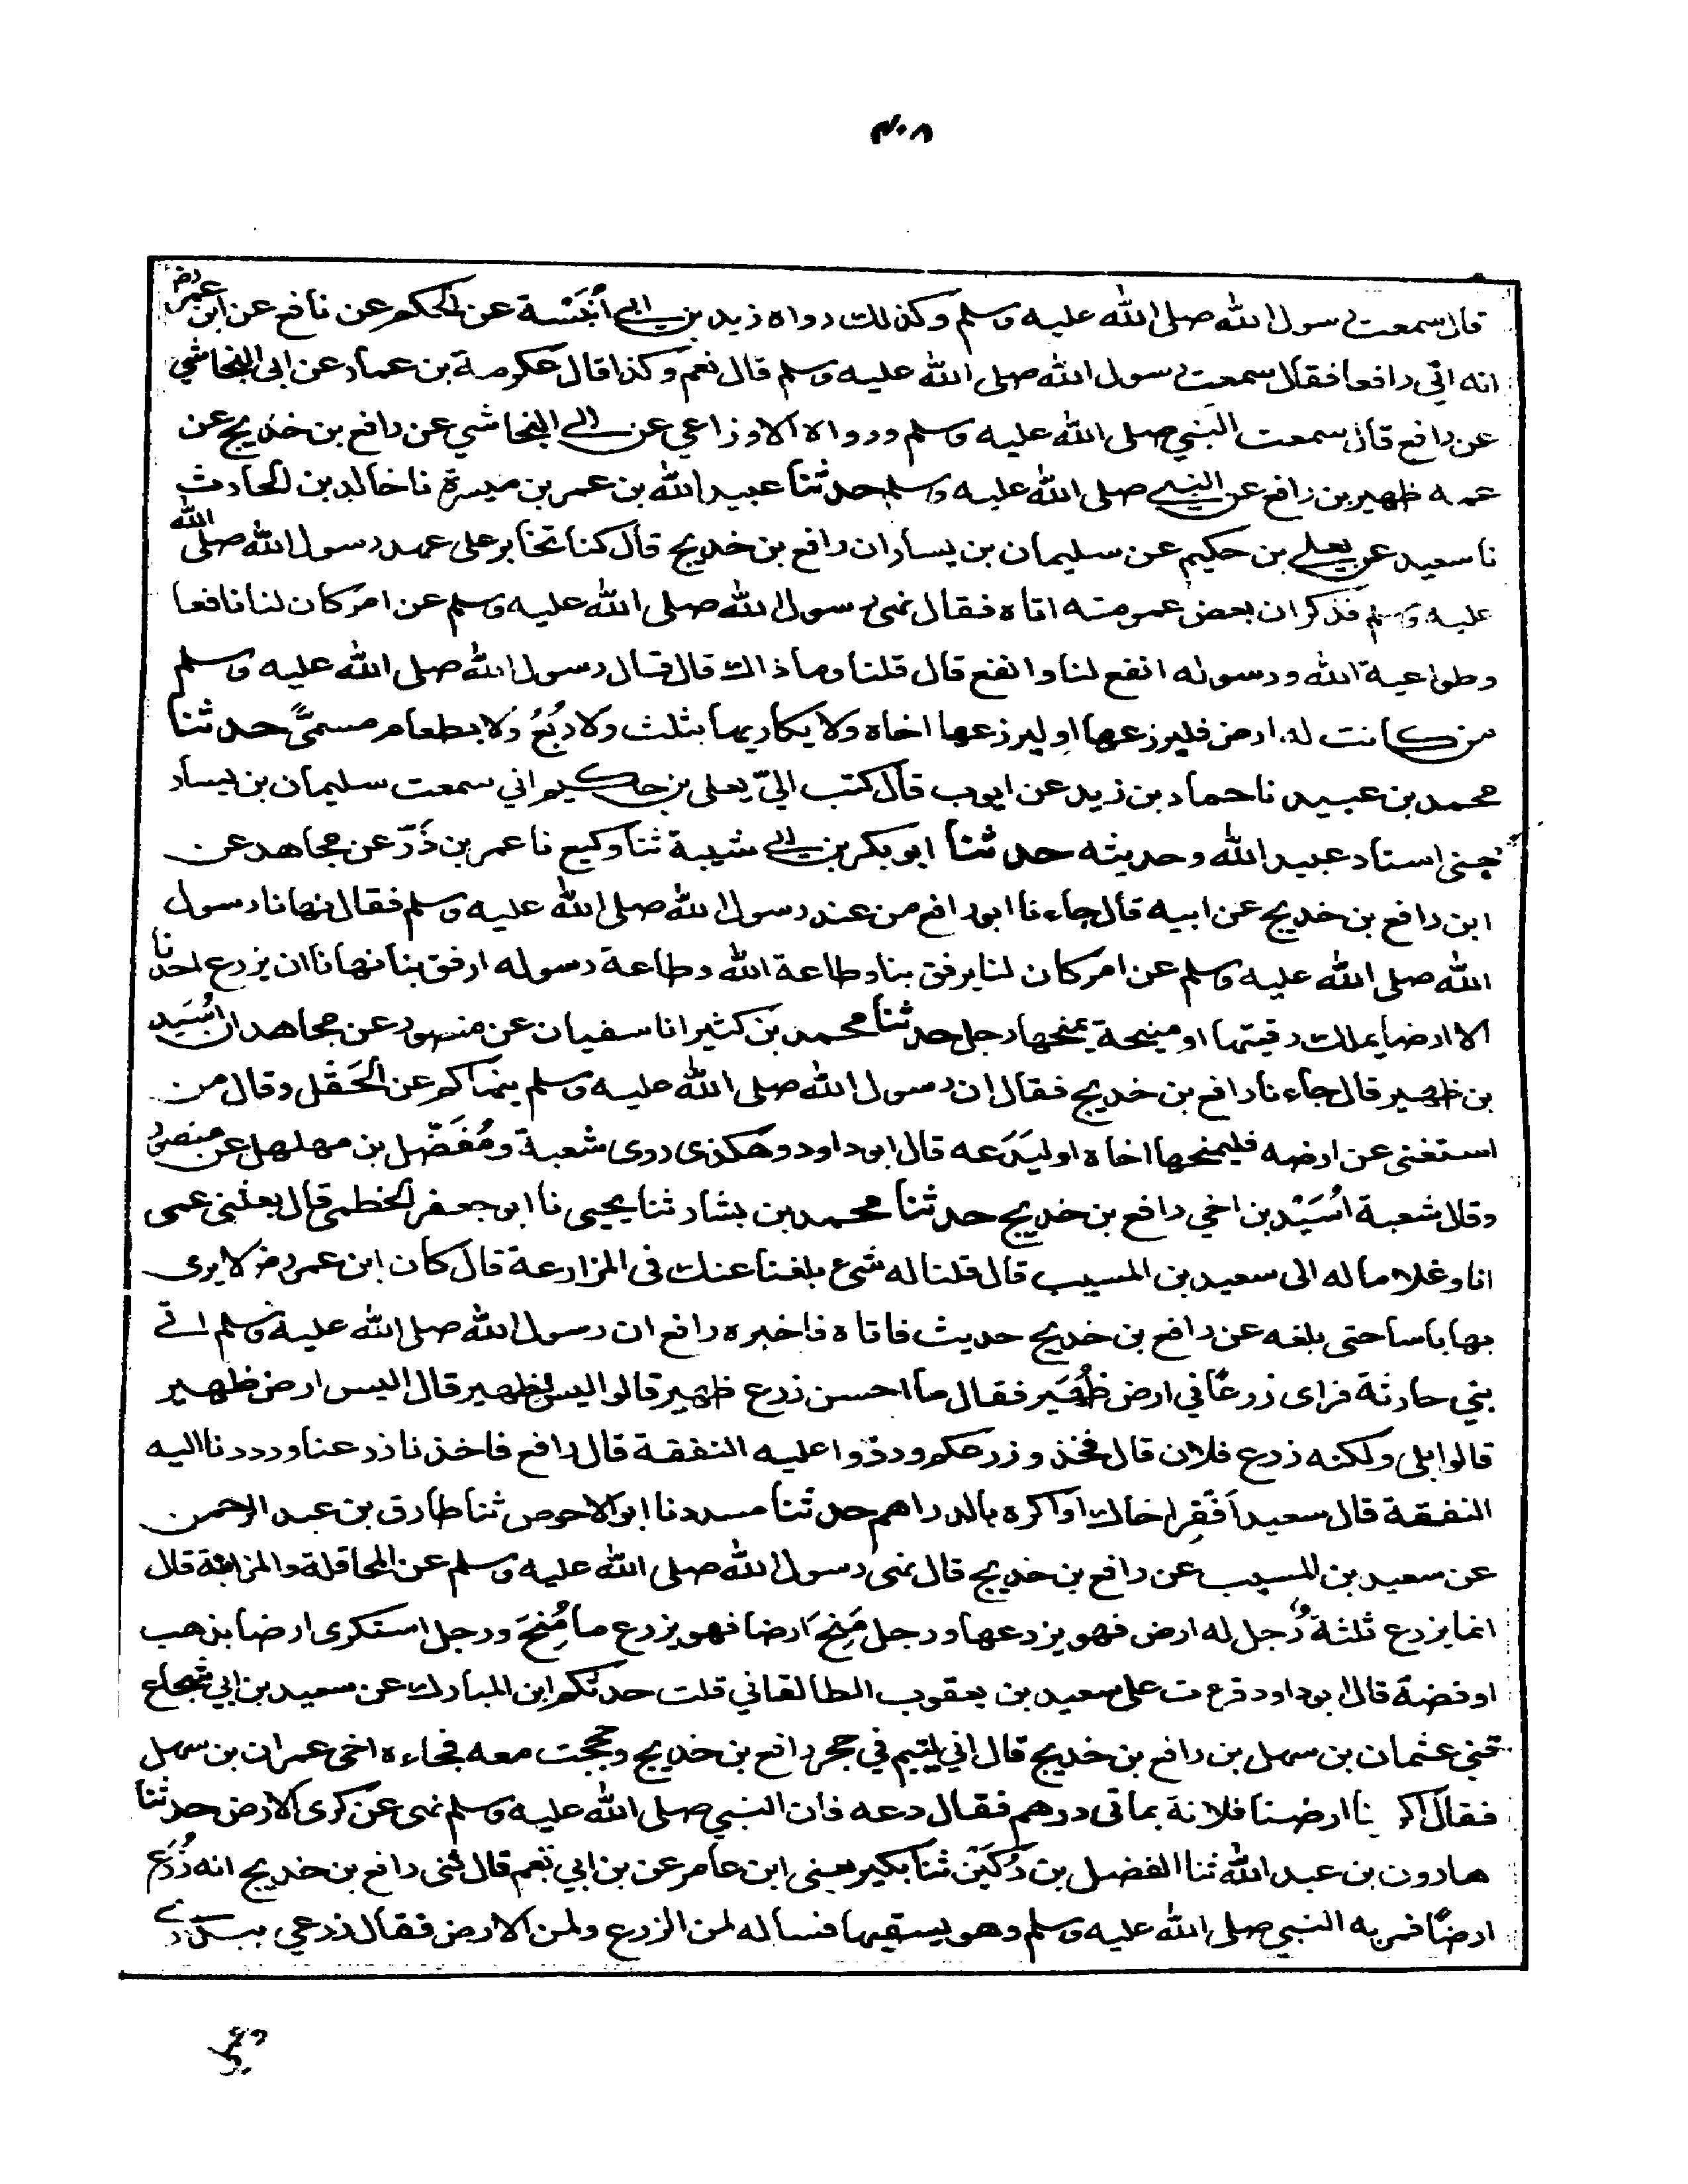 ٣٠٨
قال سمعت رسول الله صلى الله عليه وسلم وكذلك رواه زيد بن ابي اُنَيْسة عن الحكم عن نافع عن ابن عمر رض
انه اتى رافعا فقال سمعت رسول الله صلى الله عليه وسلم قال نعم وكذا قال عكرمة بن عمار عن ابى النجاشي
عن رافع قال سمعت النبي صلى الله عليه وسلم ورواه الاوزاعي عن ابي النجاشي عن رافع بن خديج عن
عمه ظهير بن رافع عن النبي صلى الله عليه وسلم حدثنا عبيد الله بن عمر بن ميسرة نا خالد بن الحارث
نا سعيد عن يعلى بن حكيم عن سليمان بن يسار ان رافع بن خديج قال كنا نخابر على عهد رسول الله صلى الله
عليه وسلم فذكر ان بعض عمومته اتاه فقال نهى رسول الله صلى الله عليه وسلم عن امر كان لنا نافعا
وطواعية الله ورسوله انفع لنا وانفع قال قلنا وما ذاك قال قال رسول الله صلى الله عليه وسلم
من كانت له ارض فليزرعها او ليزرعها اخاه ولا يكاريها بثلث ولا رُبُعُ ولا بطعام مسمىًّ حدثنا
محمد بن عبيد نا حماد بن زيد عن ايوب قال كتب اليّ يعلى بن حكيم اني سمعت سليمان بن يسار
بمعنى اسناد عبيد الله وحديثه حدثنا ابو بكر بن ابي شيبة ثنا وكيع نا عمر بن ذَرّ عن مجاهد عن
ابن رافع بن خديج عن ابيه قال جاءنا ابو رافع من عند رسول الله صلى الله عليه وسلم فقال نهانا رسول
الله صلى الله عليه وسلم عن امر كان لنا يرفق بنا وطاعة الله وطاعة رسوله ارفق بنا نهانا ان يزرع احدنا
الا ارضا يملك رقبتها او منيحة يمنحها رجل حدثنا محمد بن كثير انا سفيان عن منصور عن مجاهد ان اُسَيد
بن ظهير قال جاءنا رافع بن خديج فقال ان رسول الله صلى الله عليه وسلم ينهاكم عن الحَقْل وقال من
استغنى عن ارضه فليمنحها اخاه او ليَدَعه قال ابو داود وهكذى روى شعبة ومُفَضّل بن مهلهل عن منصور
وقال شعبة اُسَيْد بن اخي رافع بن خديج حدثنا محمد بن بشار ثنا يحيى نا ابو جعفر الخطمى قال بعثنى عمى
انا وغلاما له الى سعيد بن المسيب قال قلنا له شئ بلغنا عنك فى المزارعة قال كان ابن عمر رض لا يرى
بها باسا حتى بلغه عن رافع بن خديج حديث فاتاه فاخبره رافع ان رسول الله صلى الله عليه وسلم اتى
بني حارثة فراى زرعًا في ارض ظُهَير فقال ما احسن زرع ظهير قالوا ليس لظهير قال اليس ارض ظهير
قالوا بلى ولكنه زرع فلان قال فخذوا زرعكم وردّوا عليه النفقة قال رافع فاخذنا زرعنا ورددنا اليه
النفقة قال سعيد اَفْقِر اخاك او اكره بالدراهم حدثنا مسدد نا ابو الاحوص ثنا طارق بن عبد الرحمن
عن سعيد بن المسيب عن رافع بن خديج قال نهى رسول الله صلى الله عليه وسلم عن المحاقلة والمزابنة قال
انما يزرع ثلثة رجل له ارض فهو يزرعها ورجل مُنِحَ ارضا فهو يزرع ما مُنِحَ ورجل استكرى ارضا بذهب
او فضة قال ابو داود قرءت على سعيد بن يعقوب الطالقاني قلت حدثكم ابن المبارك عن سعيد بن ابي شجاع
ثنى عثمان بن سهل بن رافع بن خديج قال اني ليتيم في حجر رافع بن خديج وحججت معه فجاءه اخى عمران بن سهل
فقال ارضنا فلانة بماتى درهم فقال دعه فان النبي صلى الله عليه وسلم نهى عن كرى الارض حدثنا
هارون بن عبد الله ثنا الفضل بن دُكَيْن ثنا بكير يعنى ابن عامر عن بن ابي نعم قال ثنى رافع بن خديج انه زَرَع
ارضًا فمر به النبي صلى الله عليه وسلم وهو يسقيها فساله لمن الزرع ولمن الارض فقال زرعي ببذري